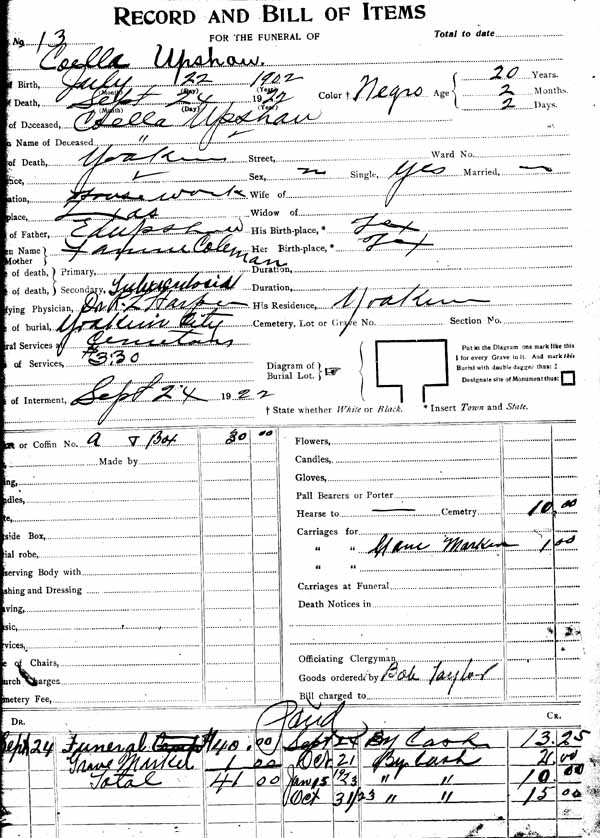 RECORD AND BILL OF ITEMS
No 13 FOR THE FUNERAL OF Total to date
Coella Upshaw.
f Birth, July 22 1902
(Month) (Day) (Year)
f Death, Sept 24 1922 Color † Negro Age 20 Years.
(Month) (Day) (Year) 2 Months.
2 Days.
of Deceased, Coella Upshaw
n Name of Deceased "
of Death, Yoakum Street, Ward No.
Sex, Single, yes Married,
ation, House work Wife of
place, Texas Widow of
of Father, Ed Upshaw His Birth-place, * Tex
en Name Mother Fannie Coleman Her Birth-place, * Tex
of death, Primary, Duration,
of death, Secondary, Duration,
ying Physician, Dr. Harper His Residence, Yoakum
of burial, Yoakum City Cemetery, Lot or Grave No. Section No.
eral Services at Cemetery
of Services, 3:30
Diagram of Burial Lot.
Put in the Diagram one mark like this
I for every Grave in it. And mark this
Burial with double dagger thus: ‡
Designate site of Monument thus:
of Interment, Sept 24 1922
† State whether White or Black. * Insert Town and State.
or Coffin No. a & Box 30 00
Made by
ing,
ndles,
tside Box,
ial robe,
serving Body with
shing and Dressing
aving,
sic,
rvices,
e of Chairs,
urch Charges
metery Fee,
Flowers,
Candles,
Gloves,
Pall Bearers or Porter
Hearse to Cemetry 10.00
Carriages for
" " Grave Marker 1 00
" "
Carriages at Funeral
Death Notices in
Officiating Clergyman
Goods ordered by Bob Taylor
Bill charged to
DR. Paid CR.
Sept 24 Funeral $40.00 Sept 24 By Cash 13.25
Grave Marker 1 00 Oct 21 By Cash
Total 41 00 Jan 5 1923 " " 10.00
Oct 31/23 " " 15 00